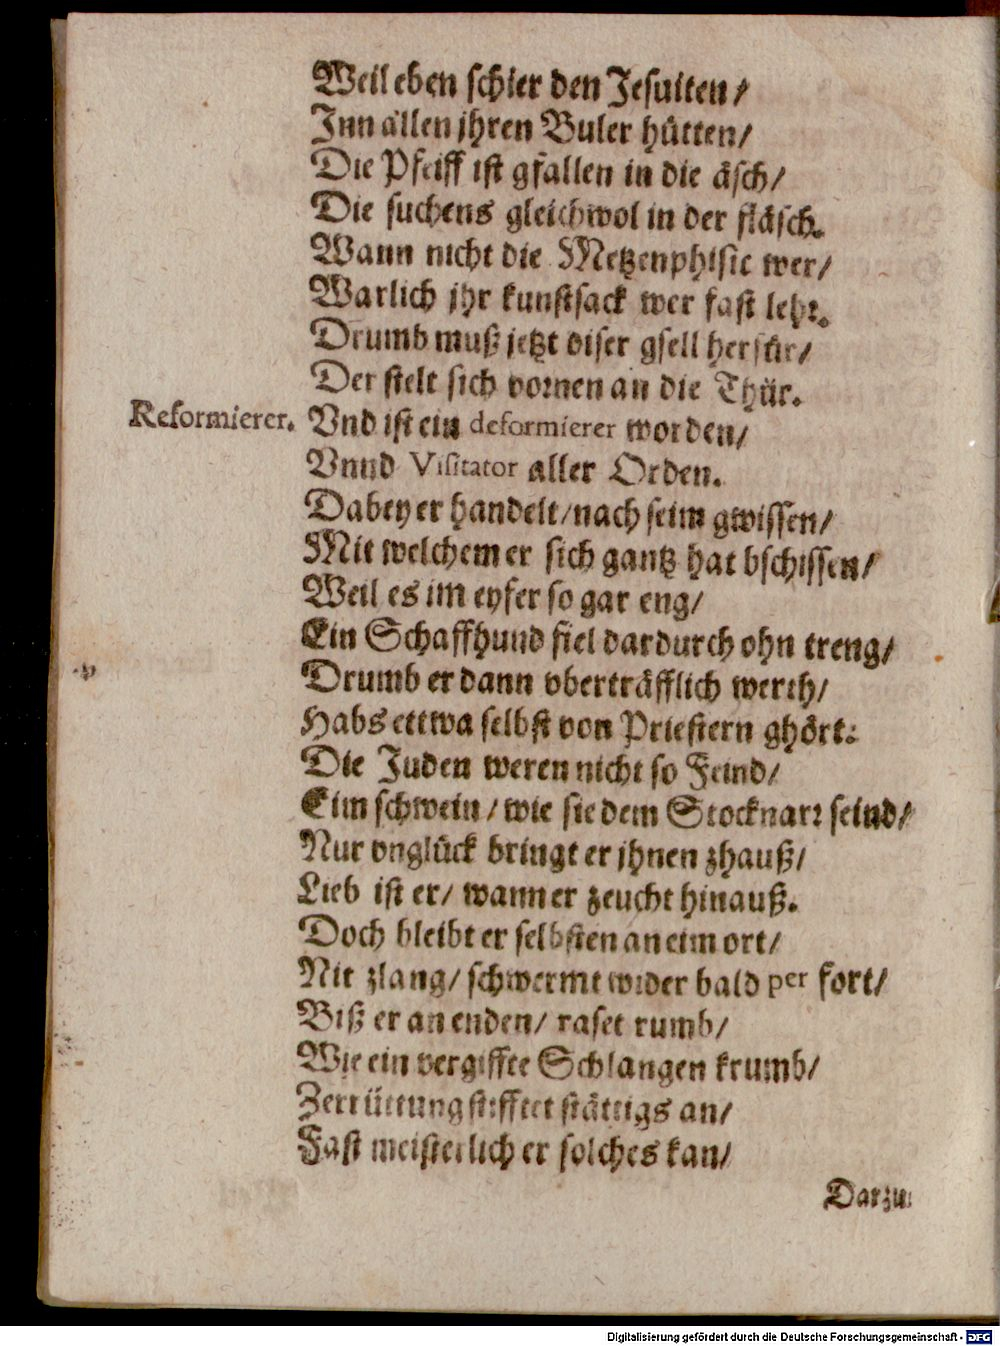 Weil eben schier den Jesuiten/
Inn allen jhren Buler hütten/
Die Pfeiff ist gfallen in die äsch/
Die suchens gleichwol in der fläsch.
Wann nicht die Metzenphisic wer/
Warlich jhr kunstsack wer fast lehr.
Drumb muß jetzt diser gsell herfür/
Der stelt sich vornen an die Thür.
Reformierer. Vnd ist ein deformierer worden/
Vnnd Visitator aller Orden.
Dabey er handelt/nach seim gwissen/
Mit welchem er sich gantz hat bschissen/
Weil es im eyfer so gar eng/
Ein Schaffhund fiel dardurch ohn treng/
Drumb er dann vberträfflich werth/
Habs ettwa selbst von Priestern ghört:
Die Juden weren nicht so Feind/
Eim schwein/wie sie dem Stocknarr seind/
Nur vnglück bringt er jhnen zhauß/
Lieb ist er/ wann er zeucht hinauß.
Doch bleibt er selbsten an eim ort/
Nit zlang/ schwermt wider bald per fort/
Biß er an enden/ raset rumb/
Wie ein vergiffte Schlangen krumb/
Zerrüttung stifftet stättigs an/
Fast meisterlich er solches kan/
Darzu
Digitalisierung gefördert durch die Deutsche Forschungsgemeinschaft - DFG